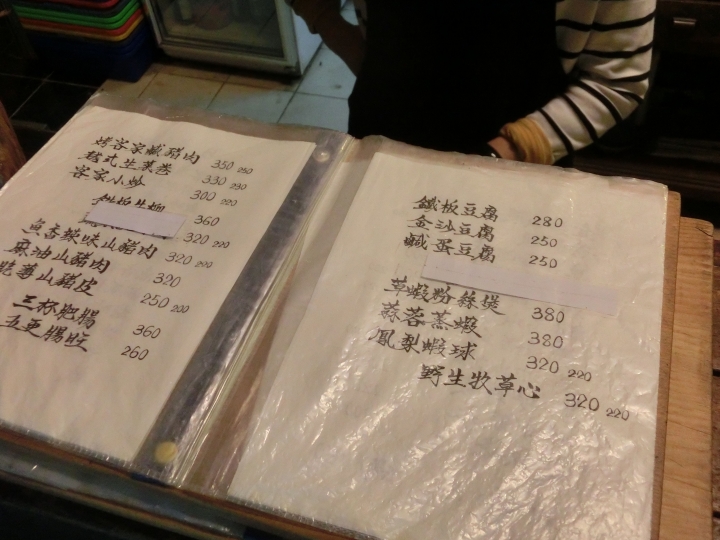 烤客家鹹豬肉 350 250
越式生菜卷 330 230
客家小炒 300 220
360
320 220
魚香辣味山豬肉 320 220
麻油山豬肉 320
山豬皮 250 200
三杯肥腸 360
五更腸旺 260
鐵板豆腐 280
金沙豆腐 250
鹹蛋豆腐 250
草蝦粉絲煲 380
蒜蓉蒸蝦 380
鳳梨蝦球 320 220
野生牧草心 320 220